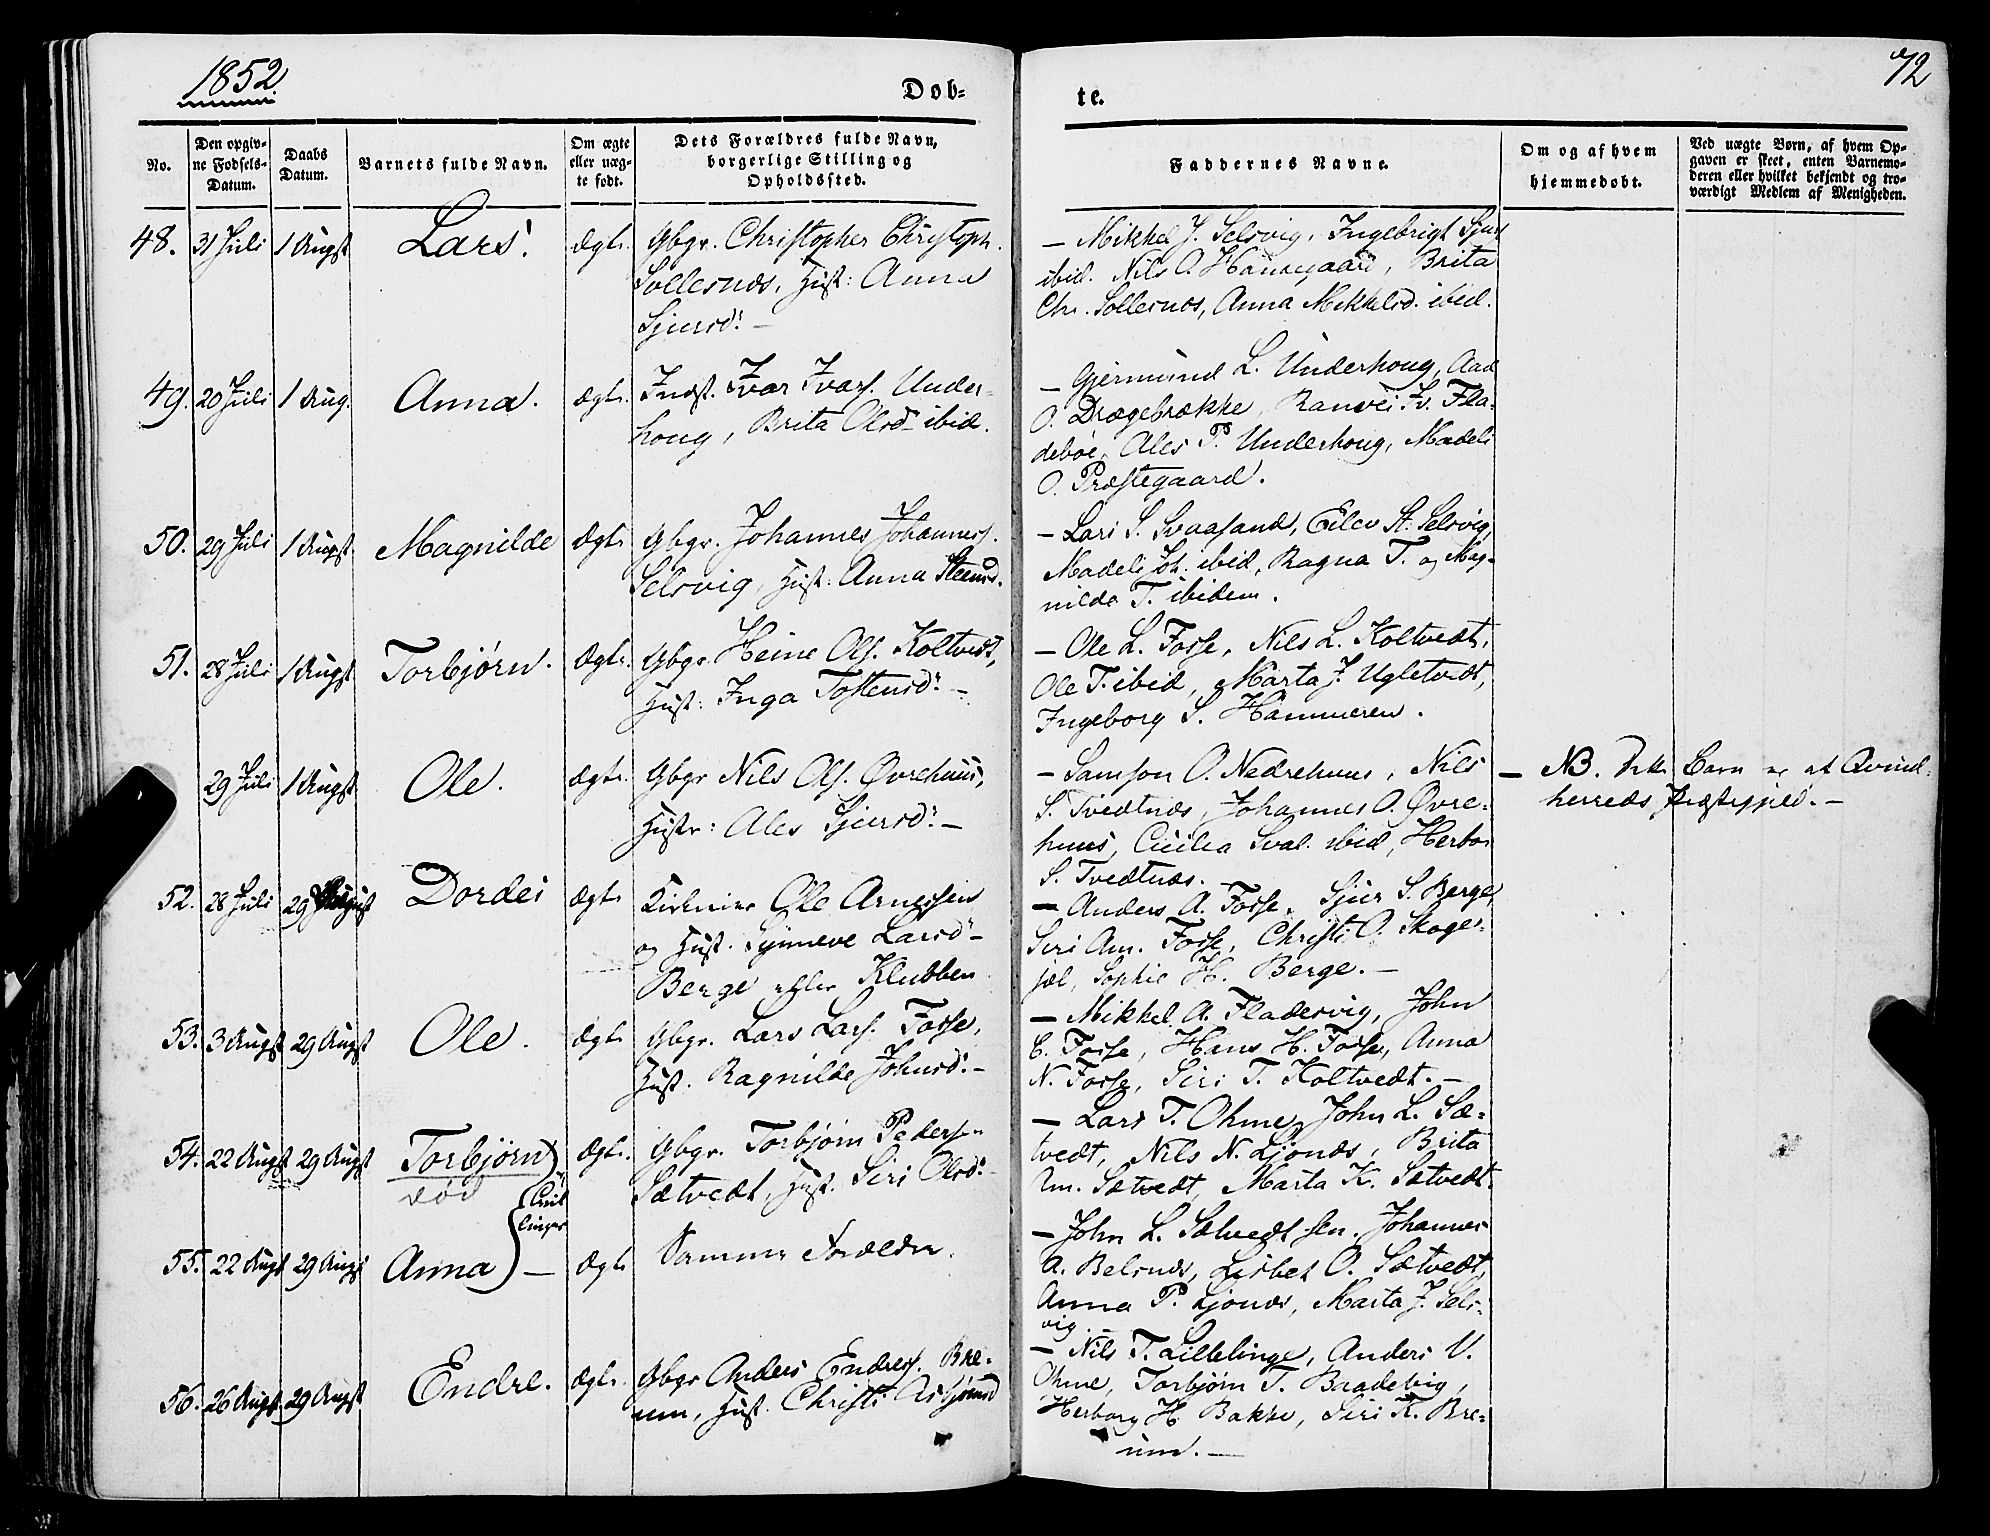 1852
72
Døb-
te.
No.
Den opgiv-
ne Fødsels-
Datum.
Daabs
Datum.
Barnets fulde Navn.
Om ægte
eller uæg-
te født.
Dets Forældres fulde Navn,
borgerlige Stilling og
Opholdssted.
Faddernes Navne.
Om og af hvem
hjemmedøbt.
Ved uægte Børn, af hvem Op-
gaven er skeet, enten Barnemo-
deren eller hvilket bekjendt og tro-
værdigt Medlem af Menigheden.
48. 31 Juli 1 Augst Lars. Ægte. Gbgr. Christopher Christoph.
Sollesnæs, Hust: Anna
Sjursd: –
– Mikkel J. Selsvig, Ingebrigt Sjurs
ibid. Nils O. Hannegaard, Brita
Chr. Sollesnæs, Anna Mikkelsd. ibid.
49. 20 Juli 1 Aug. Anna. Ægte. Indst. Ivar Ivars. Under-
houg, Brita Olsd ibid.
– Gjermund L. Underhoug, Aad
O. Drægebrække, Ranvei Iv. Fla-
debøe, Ales P. Underhoug, Madeli
O. Præstegaard.
50. 29 Juli 1 Augst. Magnilde Ægte Gbgr. Johannes Johanness.
Selsvig, Hust: Anna Steensd.
– Lars S. Svaasand, Eilev St. Selsvig,
Madeli Joh. ibid, Ragna T. og Mag-
nilda T. ibidem.
51. 28 Juli 1 Augst Torbjørn. Ægte. Gbgr. Heine Ols. Koltvedt,
Hust: Inga Tostensd: –
– Ole L. Fosse, Nils L. Koltvedt,
Ole T. ibid, Marta J. Ugletvedt,
Ingeborg S. Hammeren.
29 Juli 1 Augst Ole. Ægte. Gbgr Nils Ols. Øvrehuus,
Hustr: Ales Sjursd: –
– Samson O. Nedrehuus, Nils
S. Tvedtnæs, Johannes O. Øvre-
huus, Cicilia Sval. ibid, Herbor
S. Tvedtnæs.
– NB. Dette Barn er af Qvind-
herreds Præstegjeld. –
52. 28 Juli 29 August Dordei Ægte Ole Arnessen
og Hust. Synneve Larsd –
Berge eller Klubben
– Anders A. Fosse, Sjur S. Berge,
Siri Am. Fosse, Christi O. Skage-
sæl, Sophie H. Berge. –
53. 3 Augst 29 Augst Ole. Ægte Gbgr. Lars Lars. Fosse,
Hust. Ragnilde Johnsd: –
– Mikkel A. Fladesvig, John
E. Fosse, Hans H. Fosse, Anna
N. Fosse, Siri T. Koltvedt. –
54. 22 Augst 29 Augst Torbjørn Ægte. Gbgr. Torbjørn Pedersen
død Sætvedt, Hust. Siri Olsd: –
– Lars T. Ohme, John L. Sæ-
tvedt, Nils N. Ljonæs, Brita
Am. Sætvedt, Marta K. Sætvedt.
Tvil
linger
55. 22 Augst 29 Augst Anna – Ægte Samme Forældre.
– John L. Sætvedt sen. Johannes
A. Belsnæs, Lisbet O. Sætvedt,
Anna P. Ljonæs, Marta J. Sels-
vig.
56. 26 Augst 29 Augst Endre. Ægte. Gbgr Anders Endres. Bre-
um, Hust. Christi Asbjørnsd
– Nils T. Lillelinge, Anders V.
Ohme, Torbjørn T. Bradevig,
Herborg H. Bakke, Siri K. Bre-
um. –